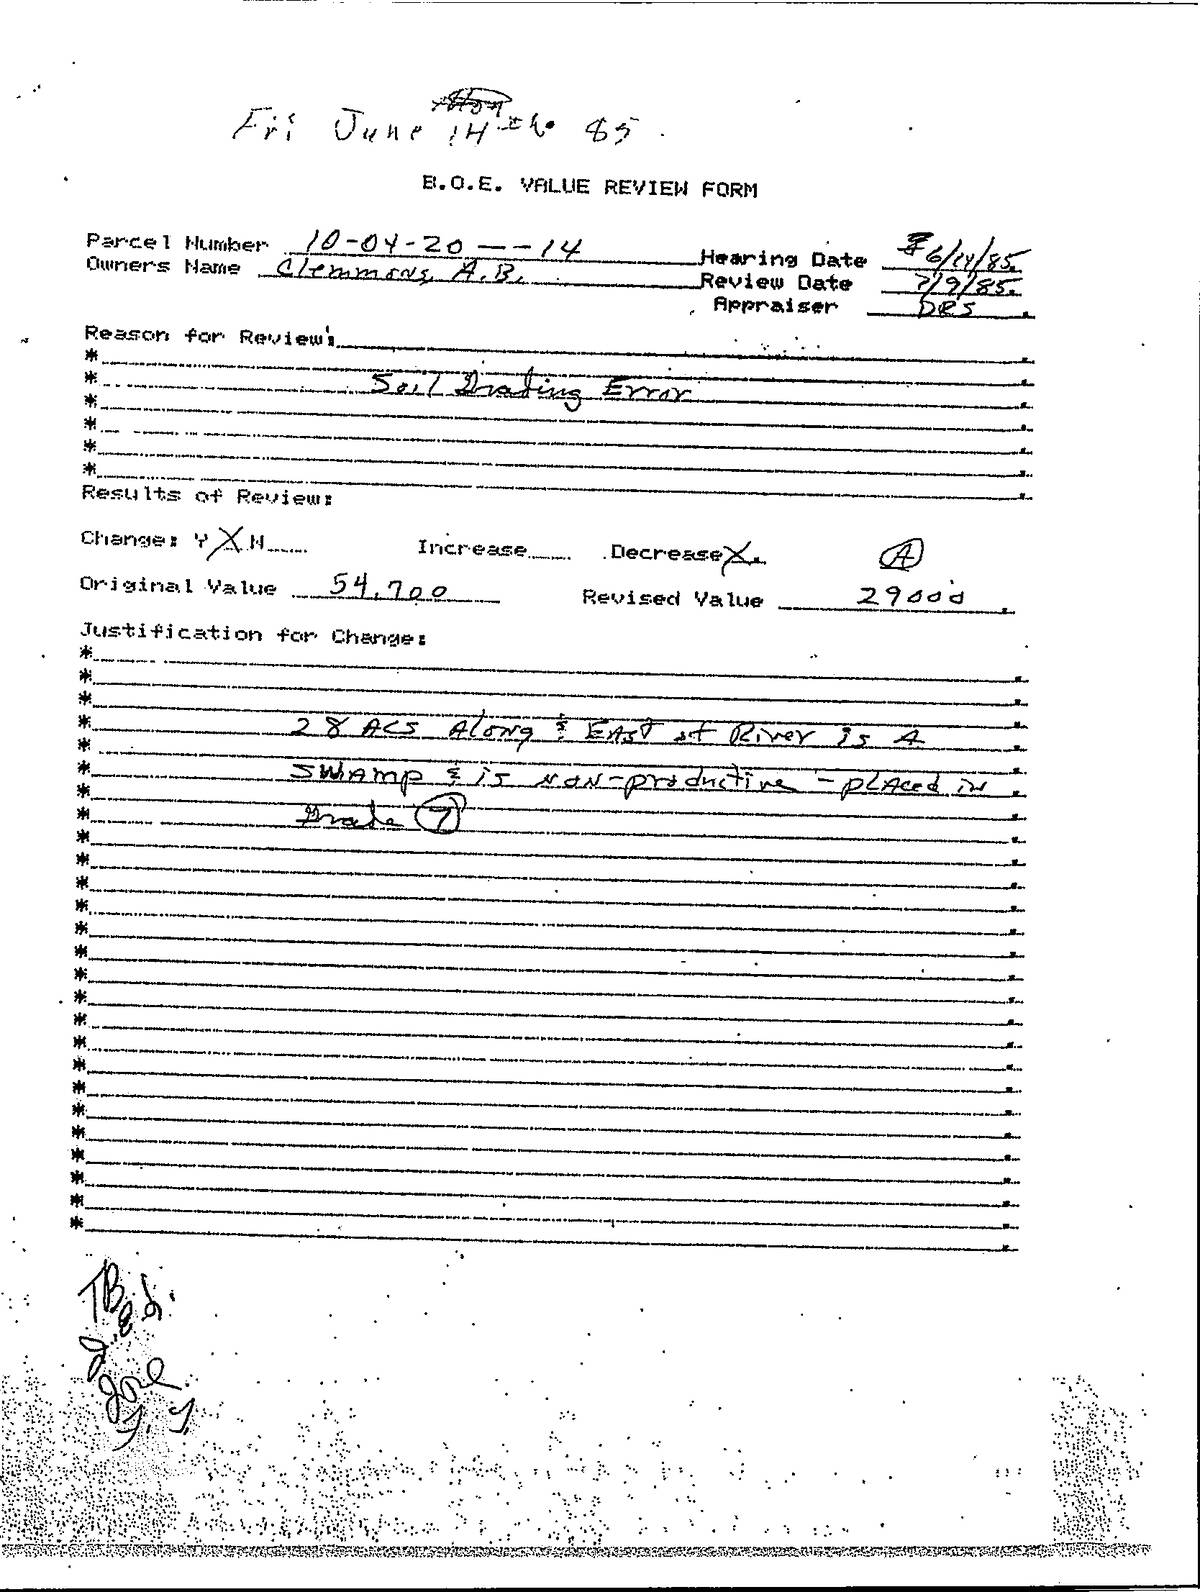 Fri June 14th 85
B.O.E. VALUE REVIEW FORM
Parcel Number 10-04-20 -- -14
Owners Name Clemmons, A.B.
Hearing Date 6/14/85
Review Date 7/9/85
Appraiser DRS
Reason for Review:
*
* Soil Grading Error
*
*
*
*
Results of Review:
Change: Y X N Increase Decrease X
A
Original Value 54,700 Revised Value 29000
Justification for Change:
*
*
*
* 28 ACS Along & EAST of River is A
*
* SWAmp & is NON-productive - plAced in
*
* Grade 7
*
*
*
*
*
*
*
*
*
*
*
*
*
*
*
*
*
*
TB